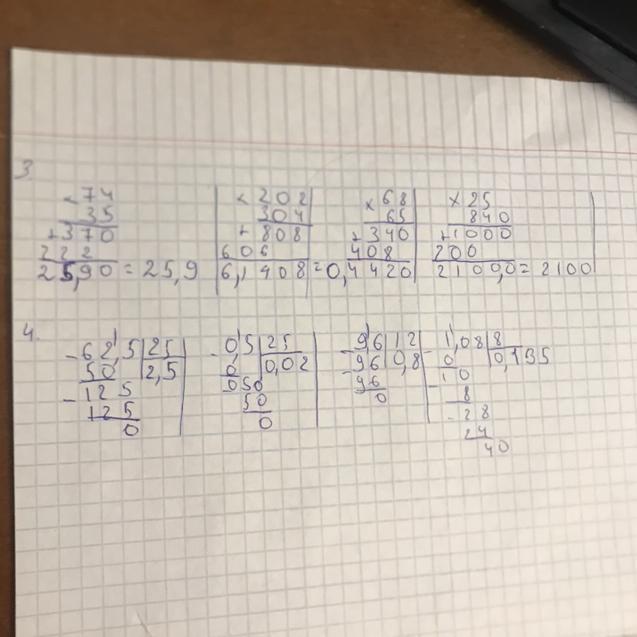 3
×74 ×202 ×68 ×25
35 304 65 840
+370 +808 +340 +1000
222 606 408 200
25,90=25,9 6,1408= 0,4420 2100,0=2100
4.
-62,5 25 -0,5 25 -96 12 -1,08 8
50 2,5 0, 0,02 -96 0,8 0 0,135
-125 050 -96 10
125 50 0 -8
0 0 -28
24
40